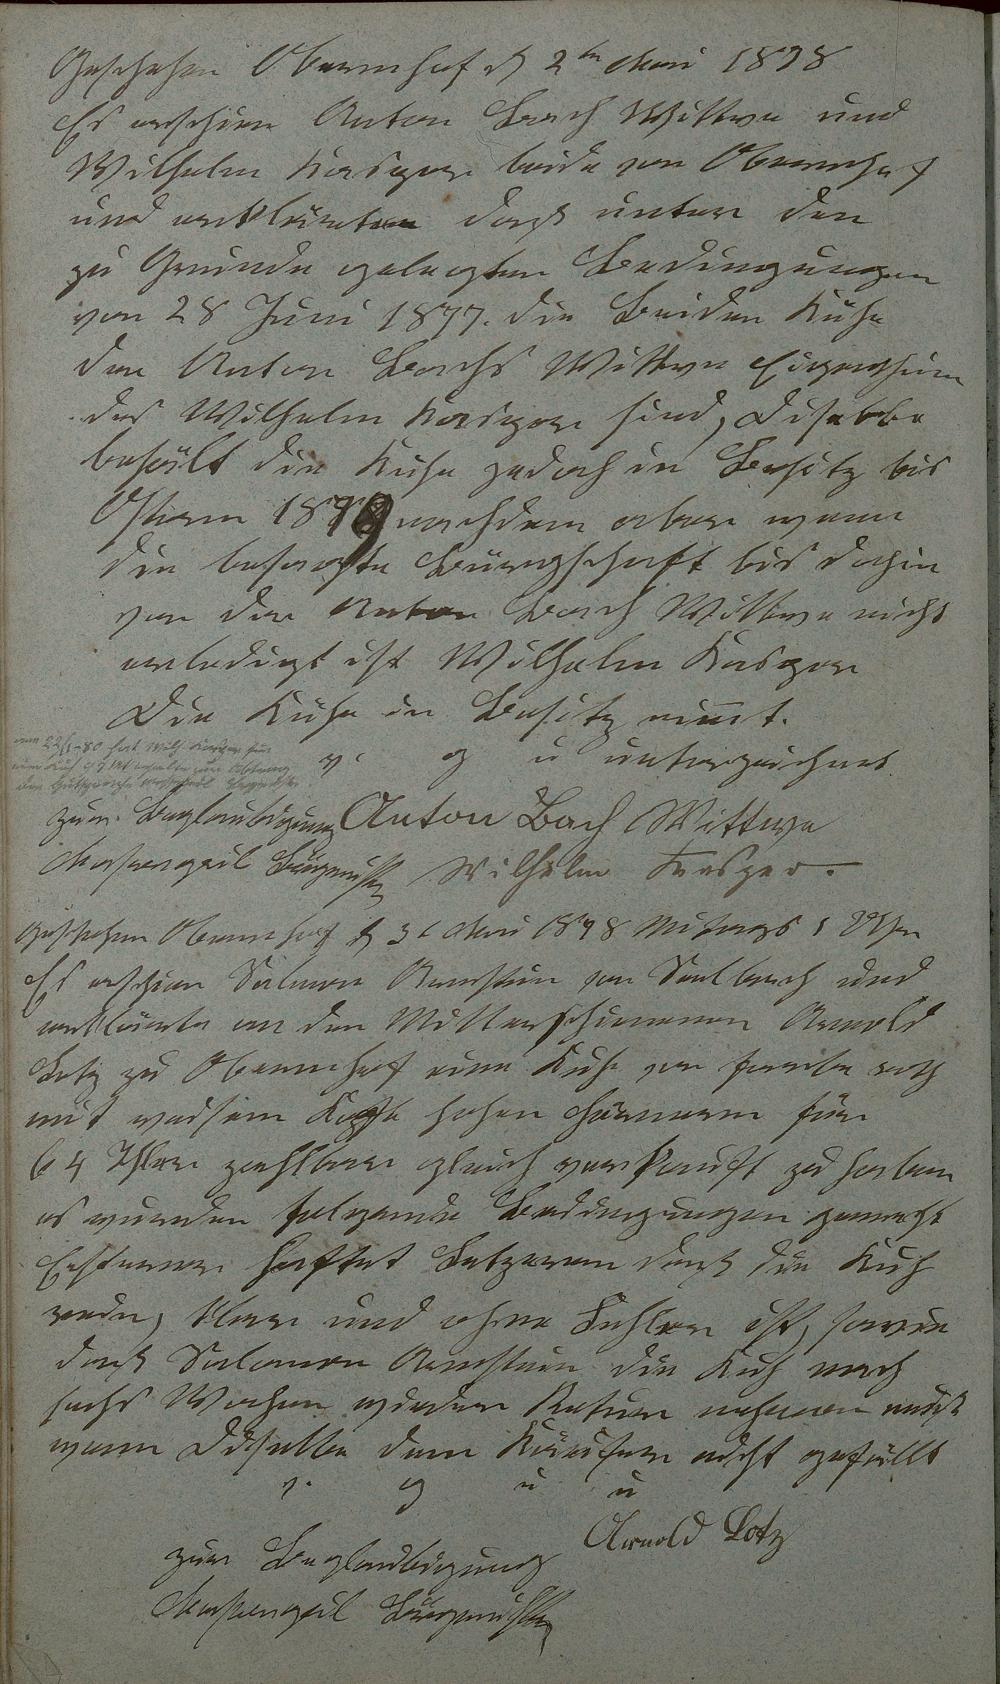 Geschehen Obernhof d 2ten Mai 1878
Es erschien Anton Bach Wittwe und
Wilhelm Kasper beide von Obernhof
und erklärten daß unter den
zu Grunde gelegten Bedingungen
von 28 Juni 1877. die Beiden Kühe
der Anton Bachs Wittwe Eigenthum
des Wilhelm Kasper sind, Diselbe
behält die Kühe jedoch in Besitz bis
Ostern 1879 nachdem aber wenn
die besagte Bürgschaft bis dahin
von der Anton Bach Wittwe nicht
erledigt ist Wilhelm Kasper
Die Kühe in Besitz nimt.
v. g u unterzeichnet
zur Beglaubigung Anton Bach Wittwe
Bürgermeister Wilhelm Kasper.
Geschehen Obernhof d 31 Mai 1878 Mitags 1 Uhr
Es erschien Salmon Arnstein von Seelbach und
erklärte an den Mitterschienenen Arnold
Lotz zu Obernhof eine Kuh von farbe roth
mit weisem Kopfe hohen Hörnern für
64 Thler zahlbar gleich verkauft zu haben
es wurden folgende Bedingungen gemacht
Esterer haftet Letzerem daß die Kuh
rein, klar und ohne Fehler ist, sowie
daß Salomon Arnstein die Kuh nach
sechs Wochen wieder Retur nehmen muß
wenn Diselbe dem Käufer nicht gefällt
v. g u u
Arnold Lotz
zur Beglaubigung
Bürgermeister